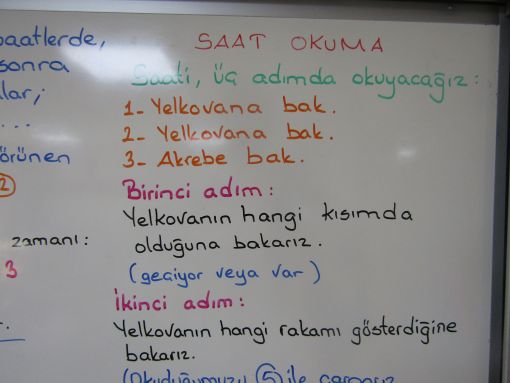 saatlerde,
sonra
lar;
...
görünen
2
zamanı:
3
SAAT OKUMA
Saati, üç adımda okuyacağız:
1- Yelkovana bak.
2- Yelkovana bak.
3- Akrebe bak.
Birinci adım:
Yelkovanın hangi kısımda
olduğuna bakarız.
(geçiyor veya var)
İkinci adım:
Yelkovanın hangi rakamı gösterdiğine
bakarız.
(Okuduğumuzu 5 ile çarparız